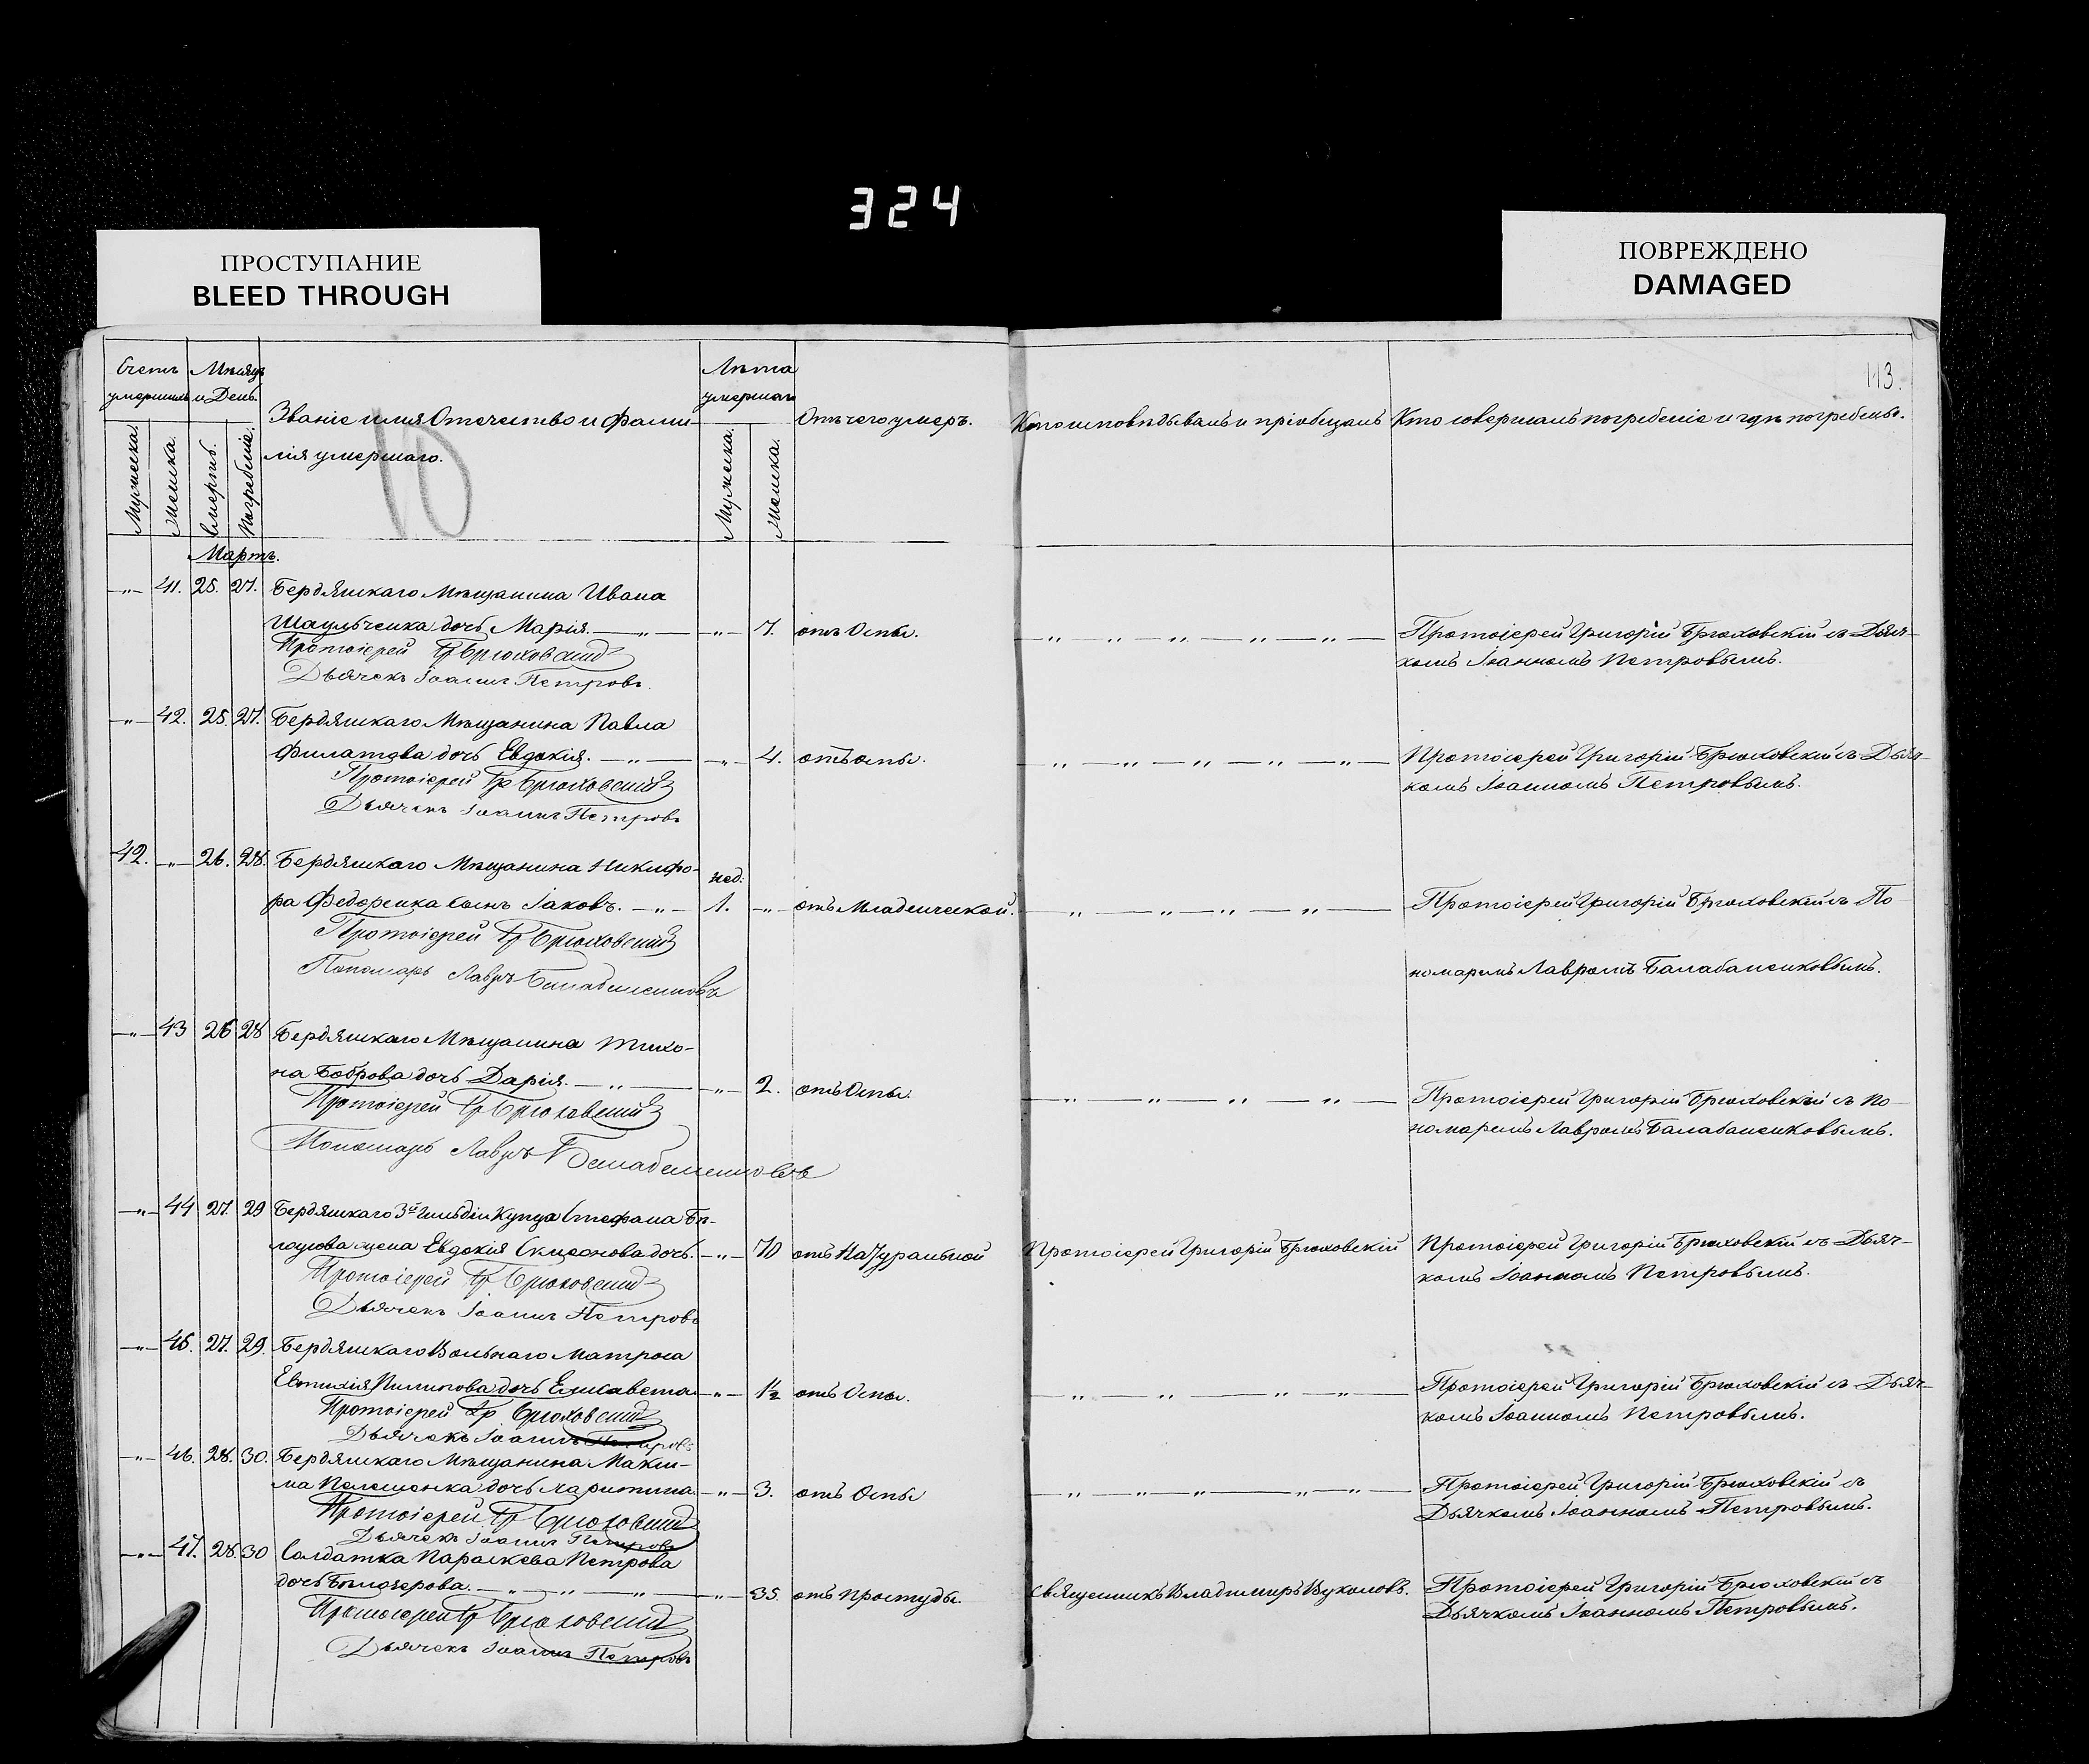 324
ПРОСТУПАНИЕ
BLEED THROUGH
ПОВРЕЖДЕНО
DAMAGED
113.
Счетъ умершихъ
Мѣсяцъ и День.
Званіе имя Отечество и фами-
лія умершаго.
Лѣта умершаго
Отъ чего умеръ.
Кто исповѣдывалъ и пріобщалъ
Кто совершалъ погребеніе и гдѣ погребены.
Мужеска.
Женска.
Смерть.
Погребеніе.
Мужеска.
Женска.
10
Мартъ.
—„— 41. 25. 27. Бердянскаго Мѣщанина Ивана
Шаульченка дочь Марія. —„— —„— 7. отъ Оспы. —„—„—„—„—„— Протоіерей Григорій Брюховскій съ Дьяч-
Протоіерей Гр Брюховскій
комъ Іоанномъ Петровымъ.
Дьячекъ Іоаннъ Петровъ.
—„— 42. 25. 27. Бердянскаго Мѣщанина Павла
Филатова дочь Евдокія. —„— —„— 4. отъ оспы. —„—„—„—„—„— Протоіерей Григорій Брюховскій съ Дьяч-
Протоіерей Гр Брюховскій
комъ Іоанномъ Петровымъ.
Дьячекъ Іоаннъ Петровъ
42. —„— 26. 28. Бердянскаго Мѣщанина Никифо-
нед:
ра Федоренка сынъ Іаковъ. —„— 1. —„— отъ Младенческой. —„—„—„—„— Протоіерей Григорій Брюховскій съ По-
Протоіерей Гр Брюховскій
Пономарь Лавръ Балабаненковъ
номаремъ Лавромъ Балабаненковымъ.
—„— 43 26 28 Бердянскаго Мѣщанина Тихо-
на Боброва дочь Дарія. —„— —„— 2. отъ Оспы. —„—„—„—„— Протоіерей Григорій Брюховскій съ По-
Протоіерей Гр Брюховскій
номаремъ Лавромъ Балабаненковымъ.
Пономарь Лавръ Балабаненковъ
—„— 44 27. 29 Бердянскаго 3й Гильдіи Купца Стефана Бѣ-
лоусова жена Евдокія дочь. —„— 70 отъ Натуральной Протоіерей Григорій Брюховскій Протоіерей Григорій Брюховскій съ Дьяч-
Протоіерей Гр Брюховскій
комъ Іоанномъ Петровымъ.
Дьячекъ Іоаннъ Петровъ
—„— 45. 27. 29. Бердянскаго Вольнаго Матроса
Евтихія Пилипова дочь Елисавета —„— 1½ отъ Оспы. —„—„—„—„— Протоіерей Григорій Брюховскій съ Дьяч-
Протоіерей Гр Брюховскій
комъ Іоанномъ Петровымъ.
Дьячекъ Іоаннъ Петровъ
—„— 46. 28. 30. Бердянскаго Мѣщанина Макси-
ма дочь Харитина —„— 3. отъ Оспы —„—„—„—„—„— Протоіерей Григорій Брюховскій съ
Протоіерей Гр Брюховскій
Дьячкомъ Іоанномъ Петровымъ.
Дьячекъ Іоаннъ Петровъ
—„— 47. 28. 30 Солдатка Параскева Петрова
дочь Бѣлозерова. —„—„—„— —„— 35. отъ простуды. Священникъ Владимиръ Вуколовъ. Протоіерей Григорій Брюховскій съ
Протоіерей Гр Брюховскій
Дьячкомъ Іоанномъ Петровымъ.
Дьячекъ Іоаннъ Петровъ